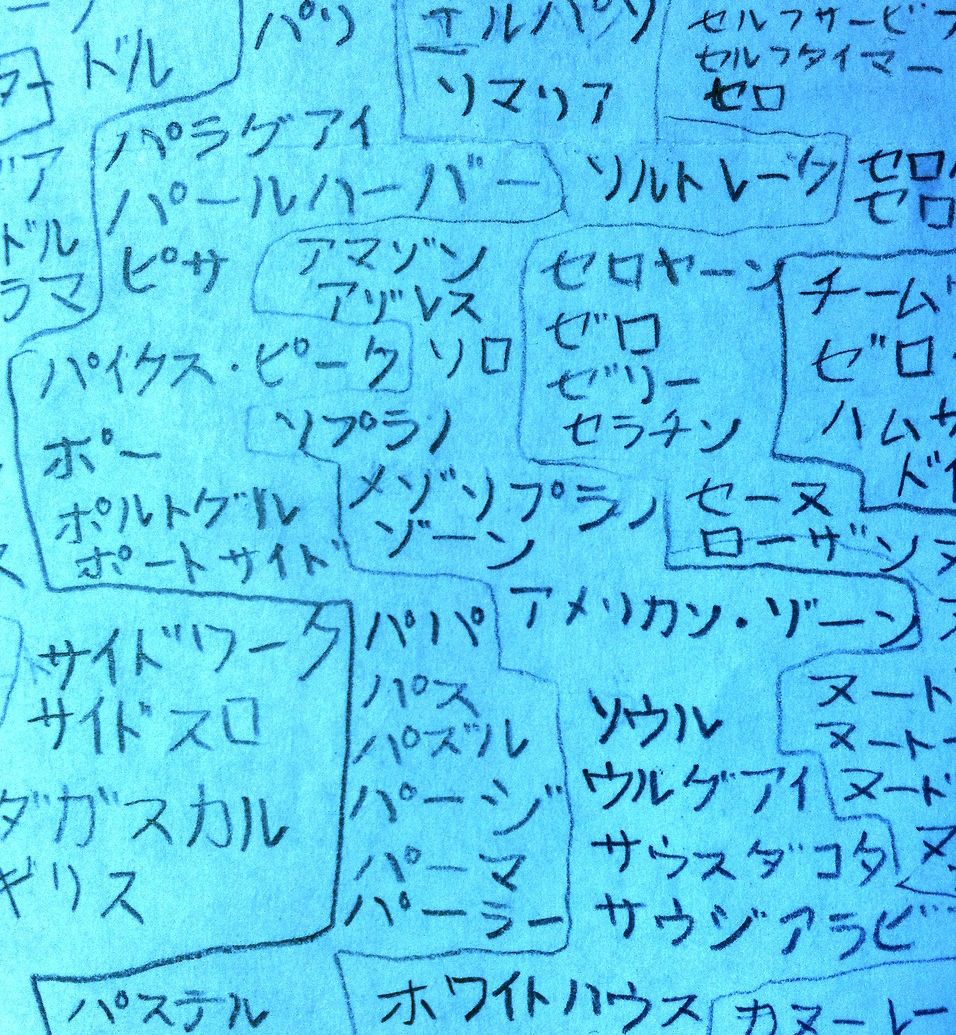 ドル
パリ
エルパソ
ソマリア
セルフサービ
セルフタイマー
ゼロ
パラグアイ
パールハーバー
ピサ
ソルトレーク
ゼロ
ゼロ
ドル
ラマ
アマゾン
アゾレス
セロヤーン
ゼロ
ゼリー
セラチン
チーム
ゼロ
ハムサ
ドイ
パイクス・ピーク
ソロ
ポー
ポルトグル
ポートサイド
ソプラノ
メゾソプラノ
ゾーン
セーヌ
ローザンヌ
アメリカン・ゾーン
サイドワーク
サイドスロ
ダガスカル
ギリス
パパ
パス
パズル
パージ
パーマ
パーラー
ソウル
ウルグアイ
サウスダコタ
サウジアラビ
ヌート
ヌートー
ヌード
ヌ
パステル
ホワイトハウス
カヌーレー